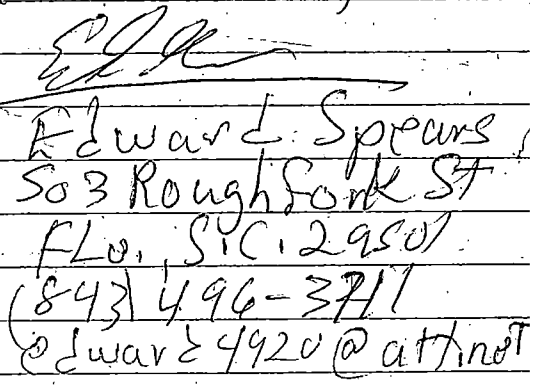 Edward Spears
503 Roughfork St
FLo., S.C. 29501
(843) 496-3711
edward4920@att.net